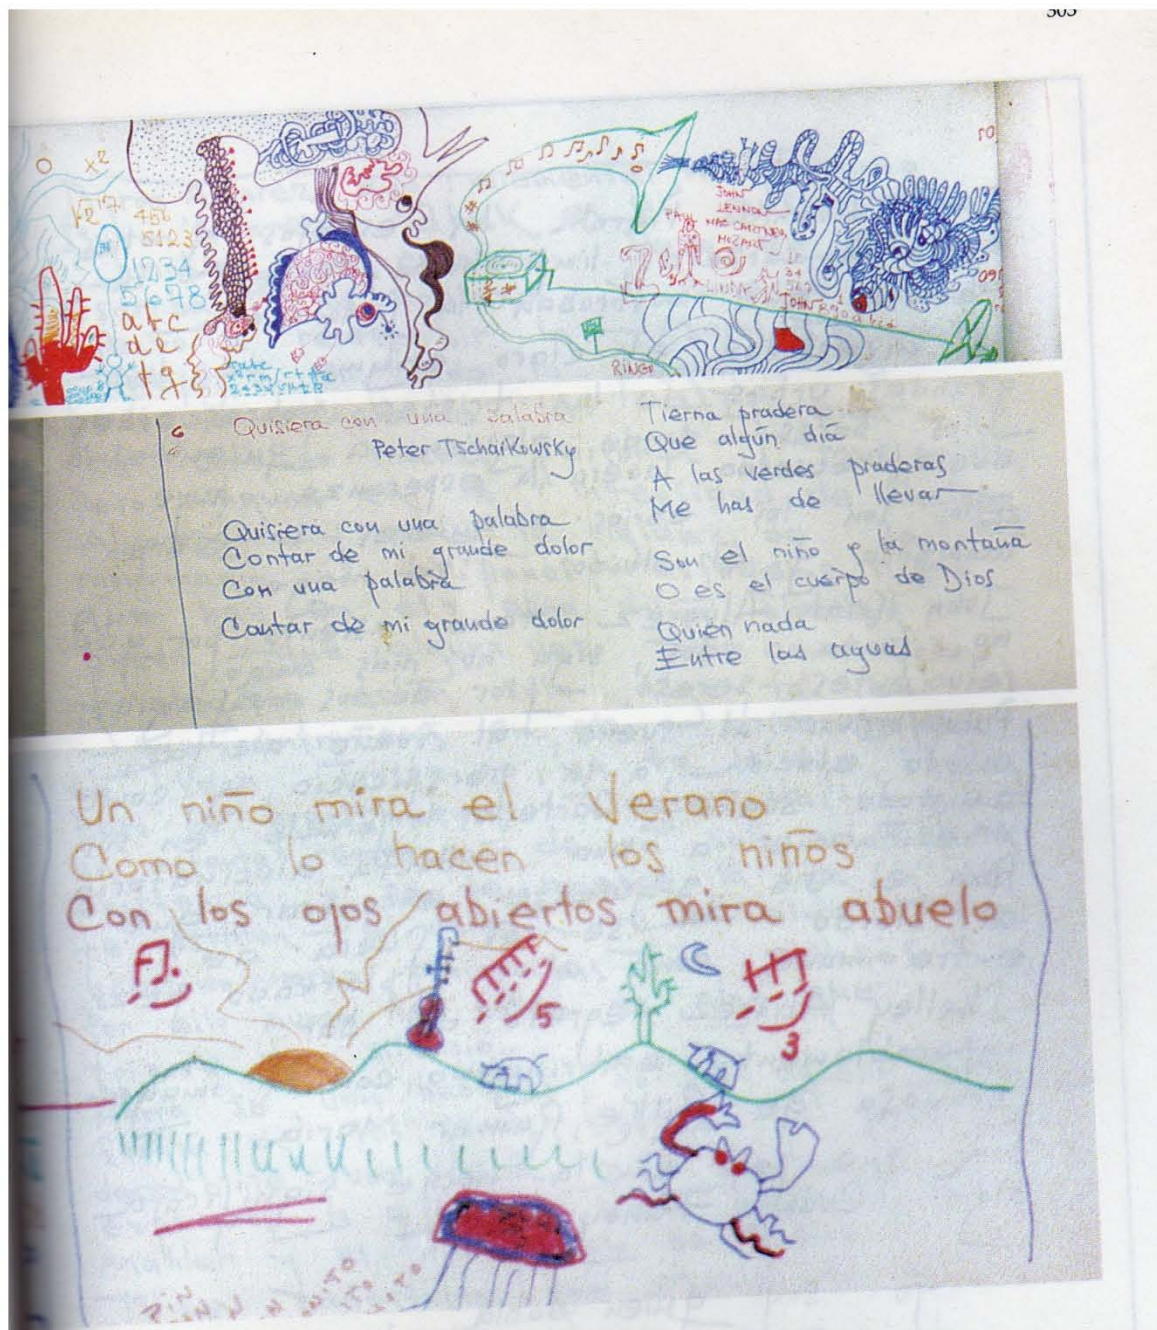 303
0 x2
√2 17 456
5123
1234
5678
abc
de
fg
JOHN
LENNON
PAUL MAC CARTNEY
MOZART
LINDA
JOHN
RINGO
Quisiera con una palabra
Peter Tschaikowsky
Quisiera con una palabra
Contar de mi grande dolor
Con una palabra
Cantar de mi grande dolor
Tierna pradera
Que algún día
A las verdes praderas
Me has de llevar
Son el niño y la montaña
O es el cuerpo de Dios
Quién nada
Entre las aguas
Un niño mira el Verano
Como lo hacen los niños
Con los ojos abiertos mira abuelo
5
3